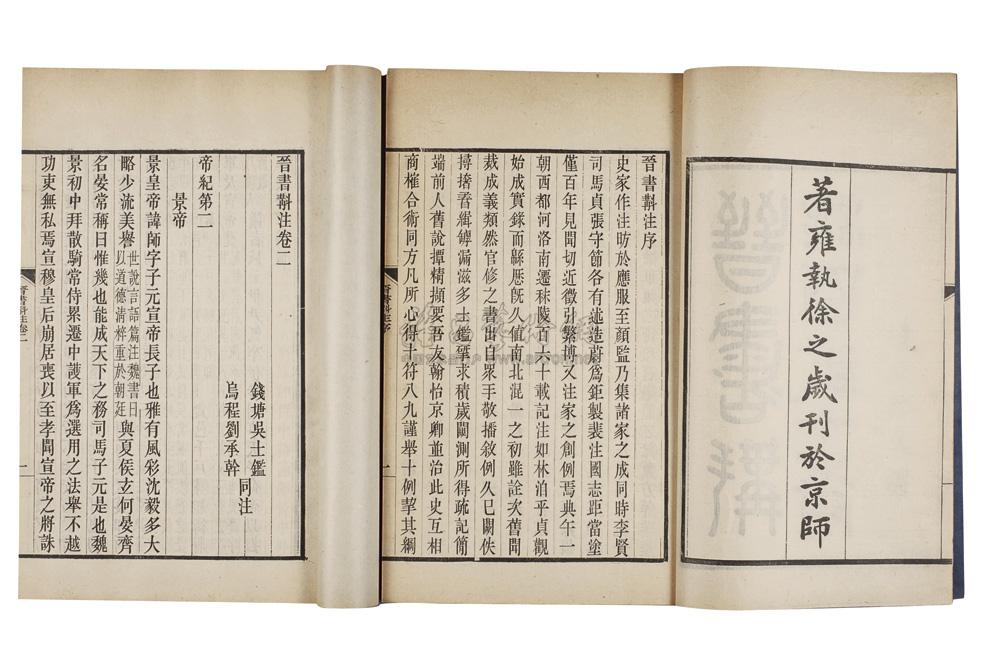 著雍執徐之歲刊於京師
晉書斠注序
史家作注昉於應服至顏監乃集諸家之成同時李賢
司馬貞張守節各有述造蔚爲鉅製裴注國志距當塗
僅百年見聞切近徵引繁博又注家之創例焉典午一
朝西都河洛南遷秣陵百六十載記注如林洎乎貞觀
始成實錄而緜歷旣久值南北混一之初雖詮次舊聞
裁成義類然官修之書出自衆手敬播敘例久已闕佚
撏撦舛緝罅漏滋多士鑑揅求積歲闚測所得疏記簡
端前人舊說摭精擷要吾友翰怡京卿並治此史互相
商榷合術同方凡所心得十符八九謹舉十例挈其綱
晉書斠注卷二
錢塘吳士鑑
烏程劉承幹
同注
帝紀第二
景帝
景皇帝諱師字子元宣帝長子也雅有風彩沈毅多大
略少流美譽世說言語篇注魏書曰以道德淸粹重於朝廷與夏侯玄何晏齊
名晏常稱曰惟幾也能成天下之務司馬子元是也魏
景初中拜散騎常侍累遷中護軍爲選用之法舉不越
功吏無私焉宣穆皇后崩居喪以至孝聞宣帝之將誅